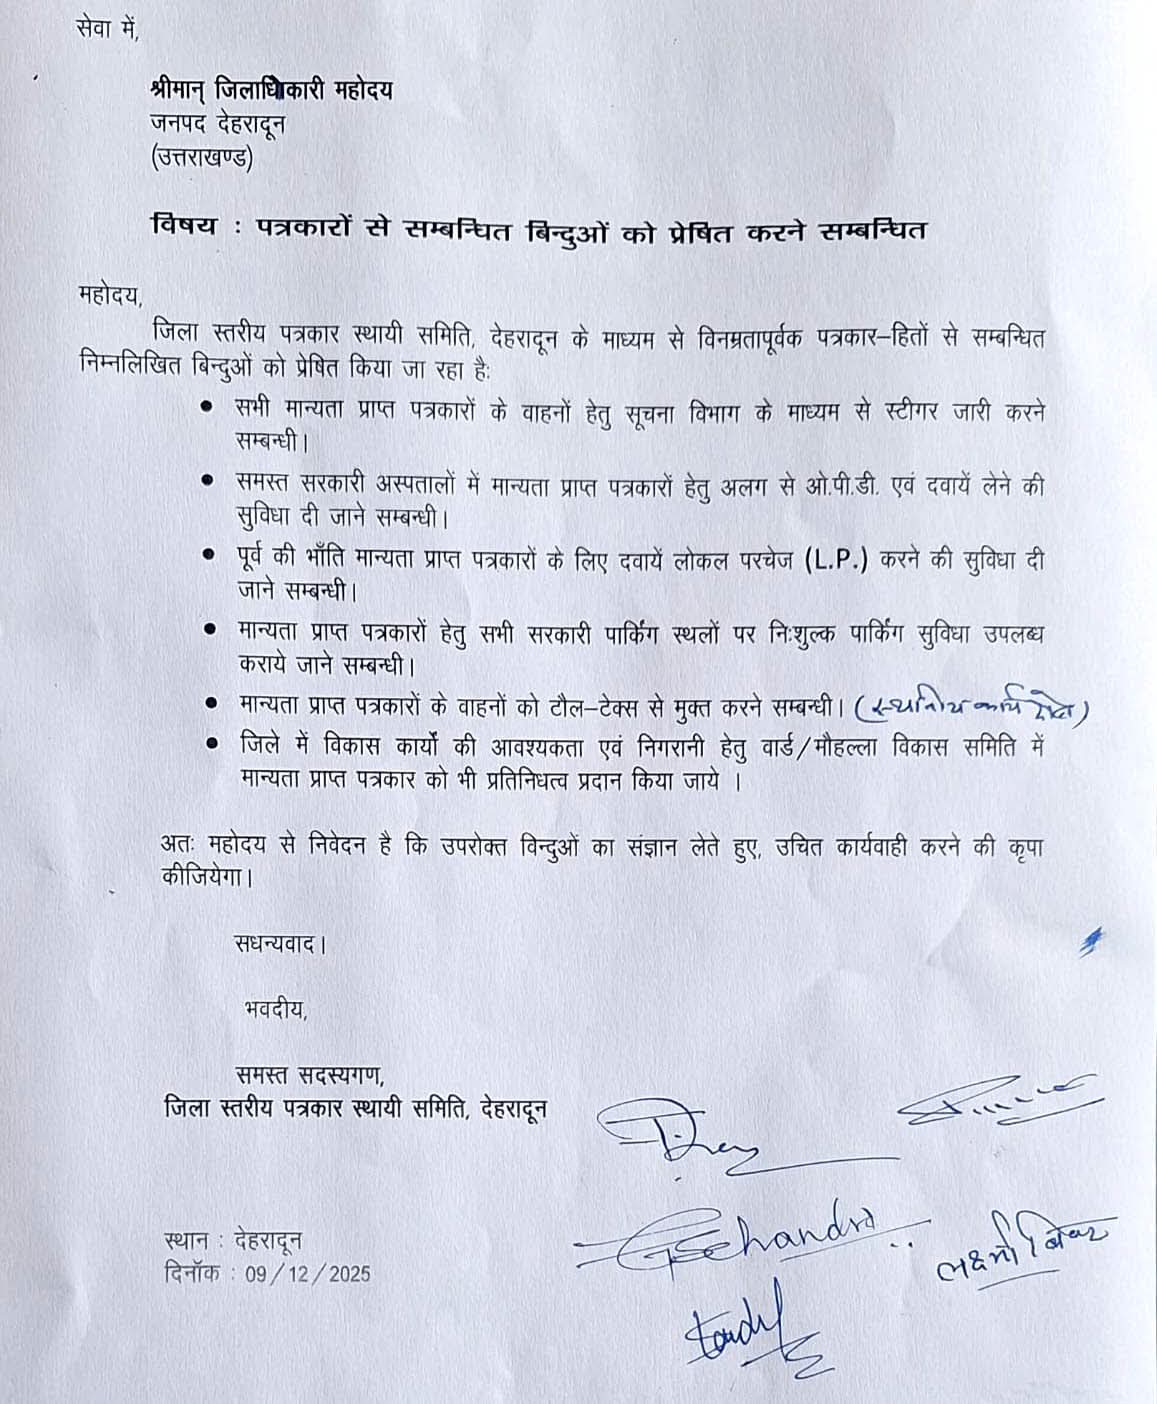 सेवा में,
श्रीमान् जिलाधिकारी महोदय
जनपद देहरादून
(उत्तराखण्ड)
विषय : पत्रकारों से सम्बन्धित बिन्दुओं को प्रेषित करने सम्बन्धित
महोदय,
जिला स्तरीय पत्रकार स्थायी समिति, देहरादून के माध्यम से विनम्रतापूर्वक पत्रकार–हितों से सम्बन्धित
निम्नलिखित बिन्दुओं को प्रेषित किया जा रहा हैः
• सभी मान्यता प्राप्त पत्रकारों के वाहनों हेतु सूचना विभाग के माध्यम से स्टीगर जारी करने
सम्बन्धी।
• समस्त सरकारी अस्पतालों में मान्यता प्राप्त पत्रकारों हेतु अलग से ओ.पी.डी. एवं दवायें लेने की
सुविधा दी जाने सम्बन्धी।
• पूर्व की भाँति मान्यता प्राप्त पत्रकारों के लिए दवायें लोकल परचेज (L.P.) करने की सुविधा दी
जाने सम्बन्धी।
• मान्यता प्राप्त पत्रकारों हेतु सभी सरकारी पार्किंग स्थलों पर निःशुल्क पार्किंग सुविधा उपलब्ध
कराये जाने सम्बन्धी।
• मान्यता प्राप्त पत्रकारों के वाहनों को टौल–टेक्स से मुक्त करने सम्बन्धी। (स्थानीय कार्य
• जिले में विकास कार्यों की आवश्यकता एवं निगरानी हेतु वार्ड/मौहल्ला विकास समिति में
मान्यता प्राप्त पत्रकार को भी प्रतिनिधत्व प्रदान किया जाये ।
अतः महोदय से निवेदन है कि उपरोक्त विन्दुओं का संज्ञान लेते हुए, उचित कार्यवाही करने की कृपा
कीजियेगा।
सधन्यवाद।
भवदीय,
समस्त सदस्यगण,
जिला स्तरीय पत्रकार स्थायी समिति, देहरादून
स्थान : देहरादून
दिनॉक : 09/12/2025